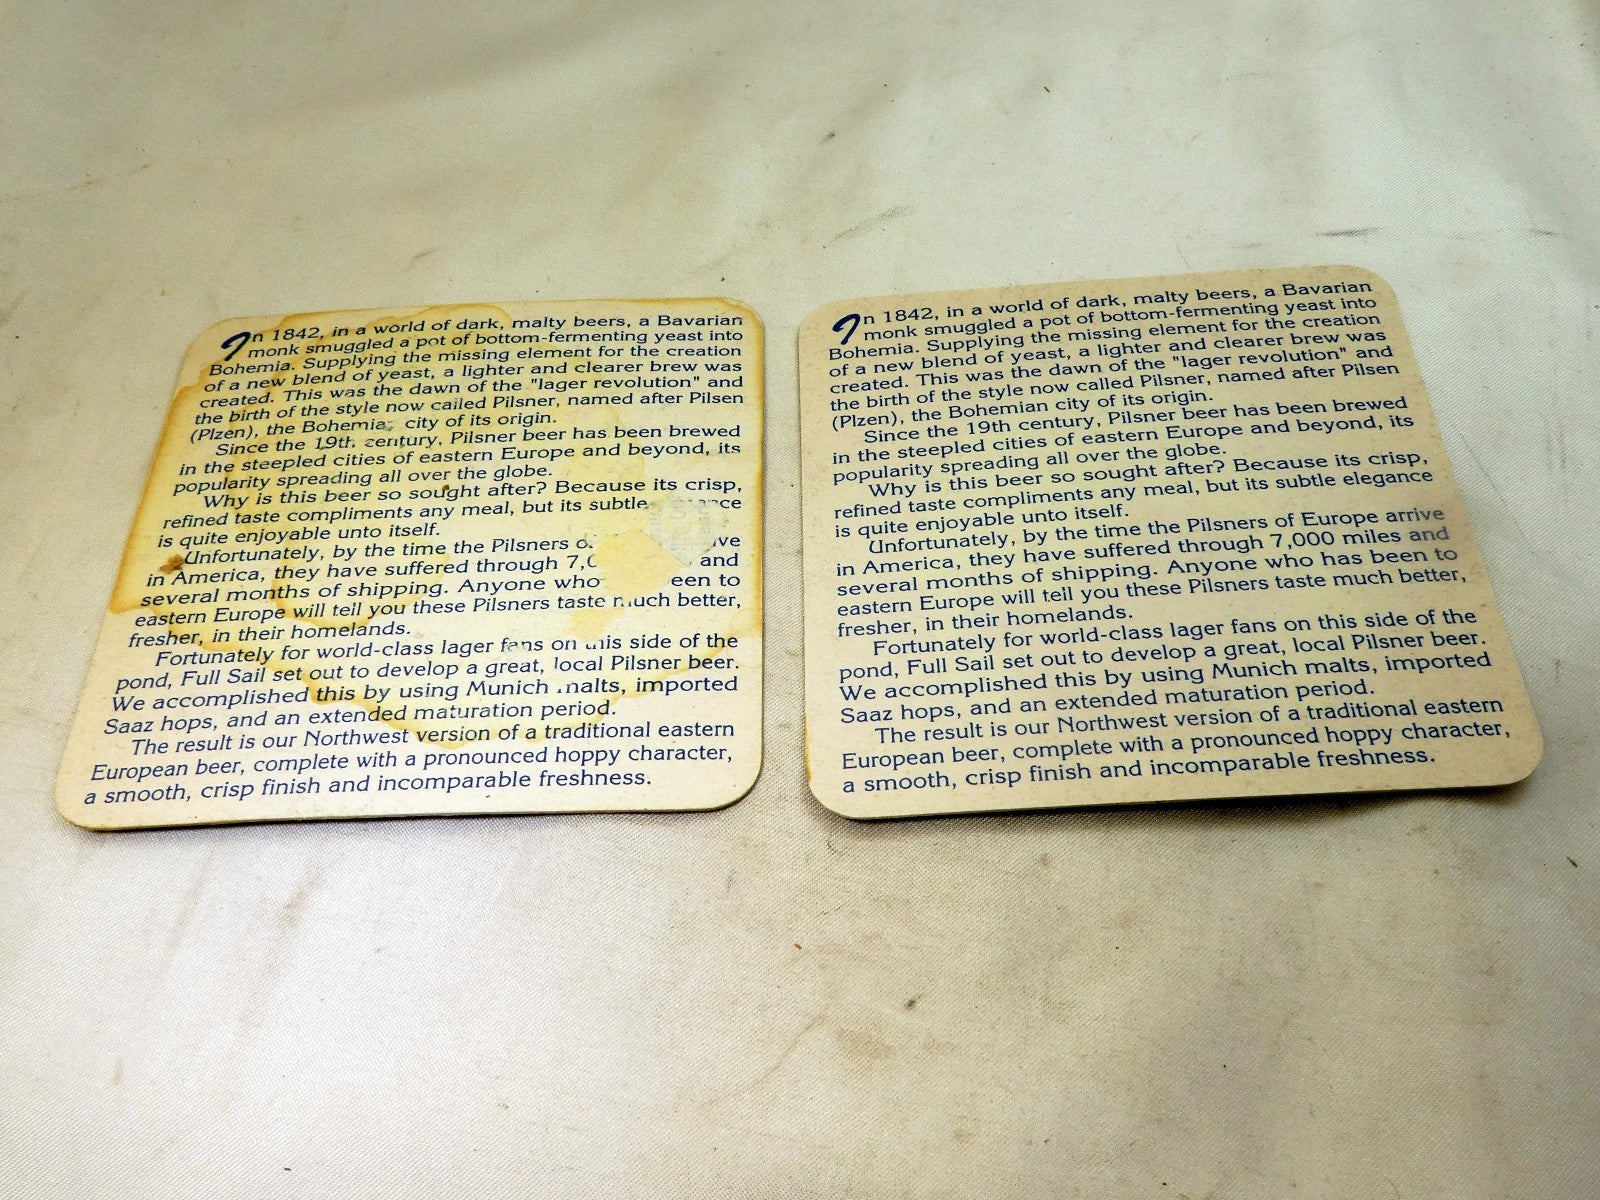 In 1842, in a world of dark, malty beers, a Bavarian
monk smuggled a pot of bottom-fermenting yeast into
Bohemia. Supplying the missing element for the creation
of a new blend of yeast, a lighter and clearer brew was
created. This was the dawn of the "lager revolution" and
the birth of the style now called Pilsner, named after Pilsen
(Plzen), the Bohemia city of its origin.
Since the 19th century, Pilsner beer has been brewed
in the steepled cities of eastern Europe and beyond, its
popularity spreading all over the globe.
Why is this beer so sought after? Because its crisp,
refined taste compliments any meal, but its subtle
is quite enjoyable unto itself.
Unfortunately, by the time the Pilsners
in America, they have suffered through and
several months of shipping. Anyone who to
eastern Europe will tell you these Pilsners taste much better,
fresher, in their homelands.
Fortunately for world-class lager fans on this side of the
pond, Full Sail set out to develop a great, local Pilsner beer.
We accomplished this by using Munich malts, imported
Saaz hops, and an extended maturation period.
The result is our Northwest version of a traditional eastern
European beer, complete with a pronounced hoppy character,
a smooth, crisp finish and incomparable freshness.
In 1842, in a world of dark, malty beers, a Bavarian
monk smuggled a pot of bottom-fermenting yeast into
Bohemia. Supplying the missing element for the creation
of a new blend of yeast, a lighter and clearer brew was
created. This was the dawn of the "lager revolution" and
the birth of the style now called Pilsner, named after Pilsen
(Plzen), the Bohemian city of its origin.
Since the 19th century, Pilsner beer has been brewed
in the steepled cities of eastern Europe and beyond, its
popularity spreading all over the globe.
Why is this beer so sought after? Because its crisp,
refined taste compliments any meal, but its subtle elegance
is quite enjoyable unto itself.
Unfortunately, by the time the Pilsners of Europe arrive
in America, they have suffered through 7,000 miles and
several months of shipping. Anyone who has been to
eastern Europe will tell you these Pilsners taste much better,
fresher, in their homelands.
Fortunately for world-class lager fans on this side of the
pond, Full Sail set out to develop a great, local Pilsner beer.
We accomplished this by using Munich malts, imported
Saaz hops, and an extended maturation period.
The result is our Northwest version of a traditional eastern
European beer, complete with a pronounced hoppy character,
a smooth, crisp finish and incomparable freshness.